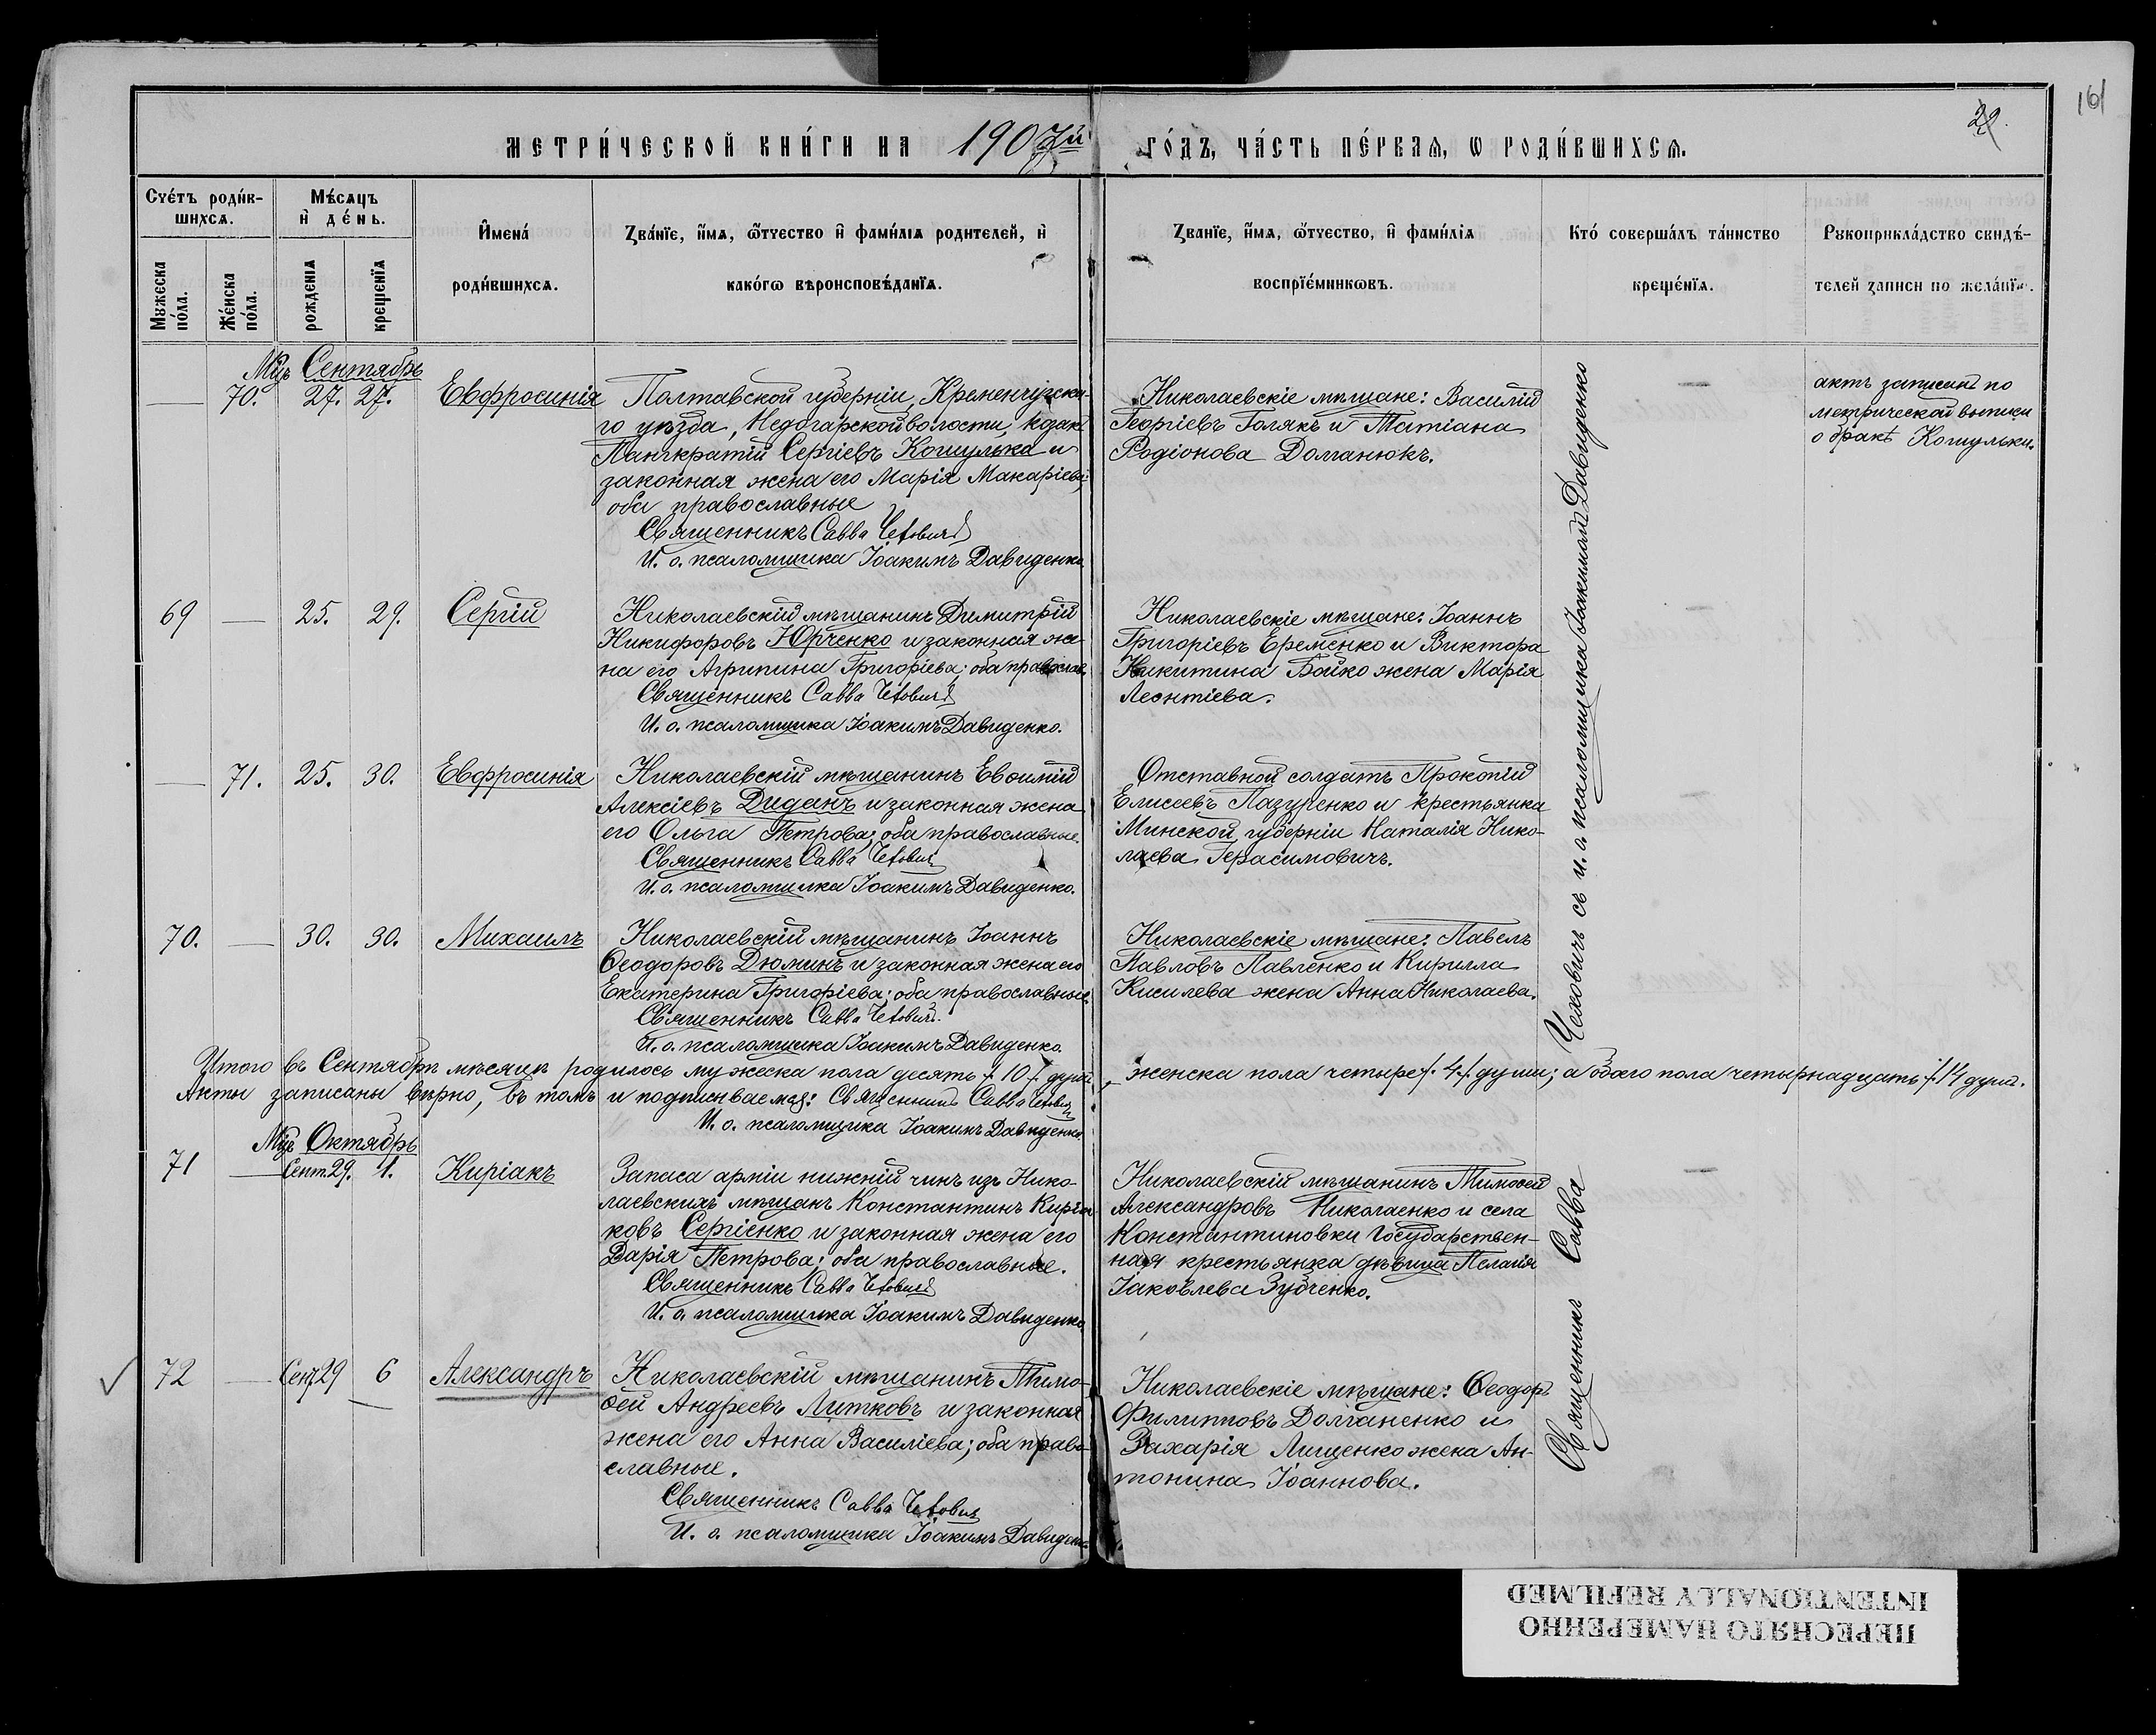 161
29.
МЕТРИ́ЧЕСКОЙ КНИ́ГИ НА 1907й ГО́ДЪ, ЧА́СТЬ ПЕ́РВАѦ, Ѡ РОДИ́ВШИХСѦ.
Счéтъ роди́в-
шихсѧ.
Мꙋжеска
по́ла.
Жéнска
по́ла.
Мѣ́сѧцъ
и҆ дéнь.
рожденїѧ
крещенїѧ
И҆мена́
роди́вшихсѧ.
Зва́нїе, и҆́мѧ, ѻ҆́тчество и҆ фами́лїѧ родителей, и҆
како́гѡ вѣроисповѣ́данїѧ.
Званїе, и҆́мѧ, ѻ҆́тчество, и҆ фами́лїѧ
воспрїе́мникѡвъ.
Кто́ соверша́лъ та́инство
креще́нїѧ.
Рꙋкоприкла́дство свидѣ́-
телей записи по жела́нїю.
Мцъ Сентябрь
— 70. 27. 27. Евфросинія
Полтавской губерніи, Кременчугска-
го уѣзда, Недогарской волости, козак
Панкратій Сергіевъ Кошулька и
законная жена его Марія Макаріева;
оба православные
Священникъ Савва Чеховичъ
И. о. псаломщика Іоакимъ Давиденко.
Николаевскіе мѣщане: Василій
Георгіевъ Голякъ и Татіана
Родіонова Долганюкъ.
—
актъ записанъ по
метрической выписи
о бракѣ Кошульки.
69 — 25. 29. Сергій
Николаевскій мѣщанинъ Димитрій
Никифоровъ Юрченко и законная же-
на его Агрипина Григоріева; оба православ.
Священникъ Савва Чеховичъ
И. о. псаломщика Іоакимъ Давиденко.
Николаевскіе мѣщане: Іоаннъ
Григоріевъ Еременко и Виктора
Никитина Бойко жена Марія
Леонтіева.
—
— 71. 25. 30. Евфросинія
Николаевскій мѣщанинъ Евѳимій
Алексіевъ Диданъ и законная жена
его Ольга Петрова; оба православные.
Священникъ Савва Чеховичъ
И. о. псаломщика Іоакимъ Давиденко.
Отставной солдатъ Прокопій
Елисеевъ Лазуренко и крестьянка
Минской губерніи Наталія Нико-
лаева Герасимовичъ.
—
70. — 30. 30. Михаилъ
Николаевскій мѣщанинъ Іоаннъ
Ѳеодоровъ Дюминъ и законная жена его
Екатерина Григоріева; оба православные.
Священникъ Савва Чеховичъ.
И. о. псаломщика Іоакимъ Давиденко.
Николаевскіе мѣщане: Павелъ
Павловъ Павленко и Кирилла
Киселева жена Анна Николаева.
—
Итого въ Сентябрѣ мѣсяцѣ родилось мужеска пола десять /. 10 /. душъ, женска пола четыре /. 4 /. души; а обоего пола четырнадцать /. 14 душъ.
Акты записаны вѣрно, въ томъ и подписываемся: Священникъ Савва Чеховичъ
И. о. псаломщика Іоакимъ Давиденко.
Мцъ Октябрь
71 — Сент. 29. 1. Киріакъ
Запаса арміи нижній чинъ изъ Нико-
лаевскихъ мѣщанъ Константинъ Киріа-
ковъ Сергіенко и законная жена его
Дарія Петрова; оба православные.
Священникъ Савва Чеховичъ
И. о. псаломщика Іоакимъ Давиденко.
Николаевскій мѣщанинъ Тимоѳей
Александровъ Николаенко и села
Константиновки Государствен-
ная крестьянка дѣвица Пелагія
Іаковлева Зубченко.
—
72 — Сент. 29 6 Александръ
Николаевскій мѣщанинъ Тимо-
ѳей Андреевъ Литковъ и законная
жена его Анна Василіева; оба право-
славные.
Священникъ Савва Чеховичъ
И. о. псаломщика Іоакимъ Давиденко.
Николаевскіе мѣщане: Ѳеодоръ
Филипповъ Долганенко и
Захарія Лищенко жена Ан-
тонина Іоаннова.
Священникъ Савва Чеховичъ съ и. о. псаломщика Іоакимомъ Давиденко
ПЕРЕСНЯТО НАМЕРЕННО
INTENTIONALLY REFILMED